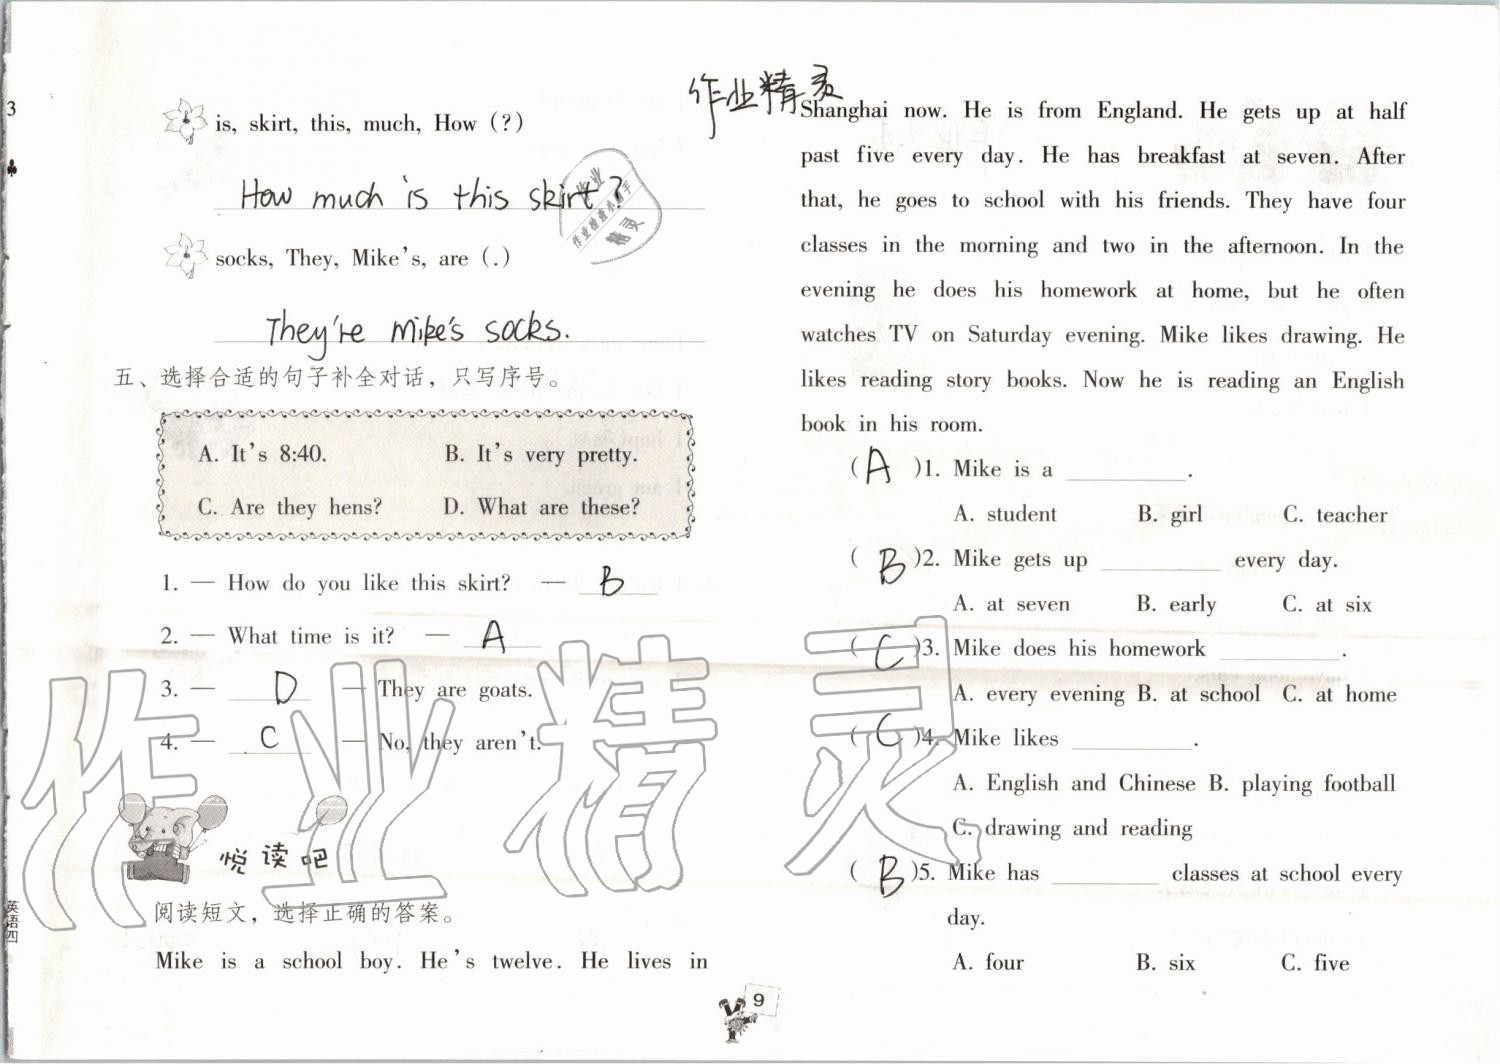 3
is, skirt, this, much, How (?)
How much is this skirt?
socks, They, Mike's, are (.)
They're Mike's socks.
五、选择合适的句子补全对话，只写序号。
A. It's 8:40.
B. It's very pretty.
C. Are they hens?
D. What are these?
1. — How do you like this skirt? — B
2. — What time is it? — A
3. — D — They are goats.
4. — C — No, they aren't.
悦读吧
阅读短文，选择正确的答案。
Mike is a school boy. He's twelve. He lives in
英语四
作业精灵
Shanghai now. He is from England. He gets up at half
past five every day. He has breakfast at seven. After
that, he goes to school with his friends. They have four
classes in the morning and two in the afternoon. In the
evening he does his homework at home, but he often
watches TV on Saturday evening. Mike likes drawing. He
likes reading story books. Now he is reading an English
book in his room.
( A )1. Mike is a ________.
A. student B. girl C. teacher
( B )2. Mike gets up ________ every day.
A. at seven B. early C. at six
( C )3. Mike does his homework ________.
A. every evening B. at school C. at home
( C )4. Mike likes ________.
A. English and Chinese B. playing football
C. drawing and reading
( B )5. Mike has ________ classes at school every
day.
A. four B. six C. five
9
作业
作业检查小帮手
精灵
作业精灵